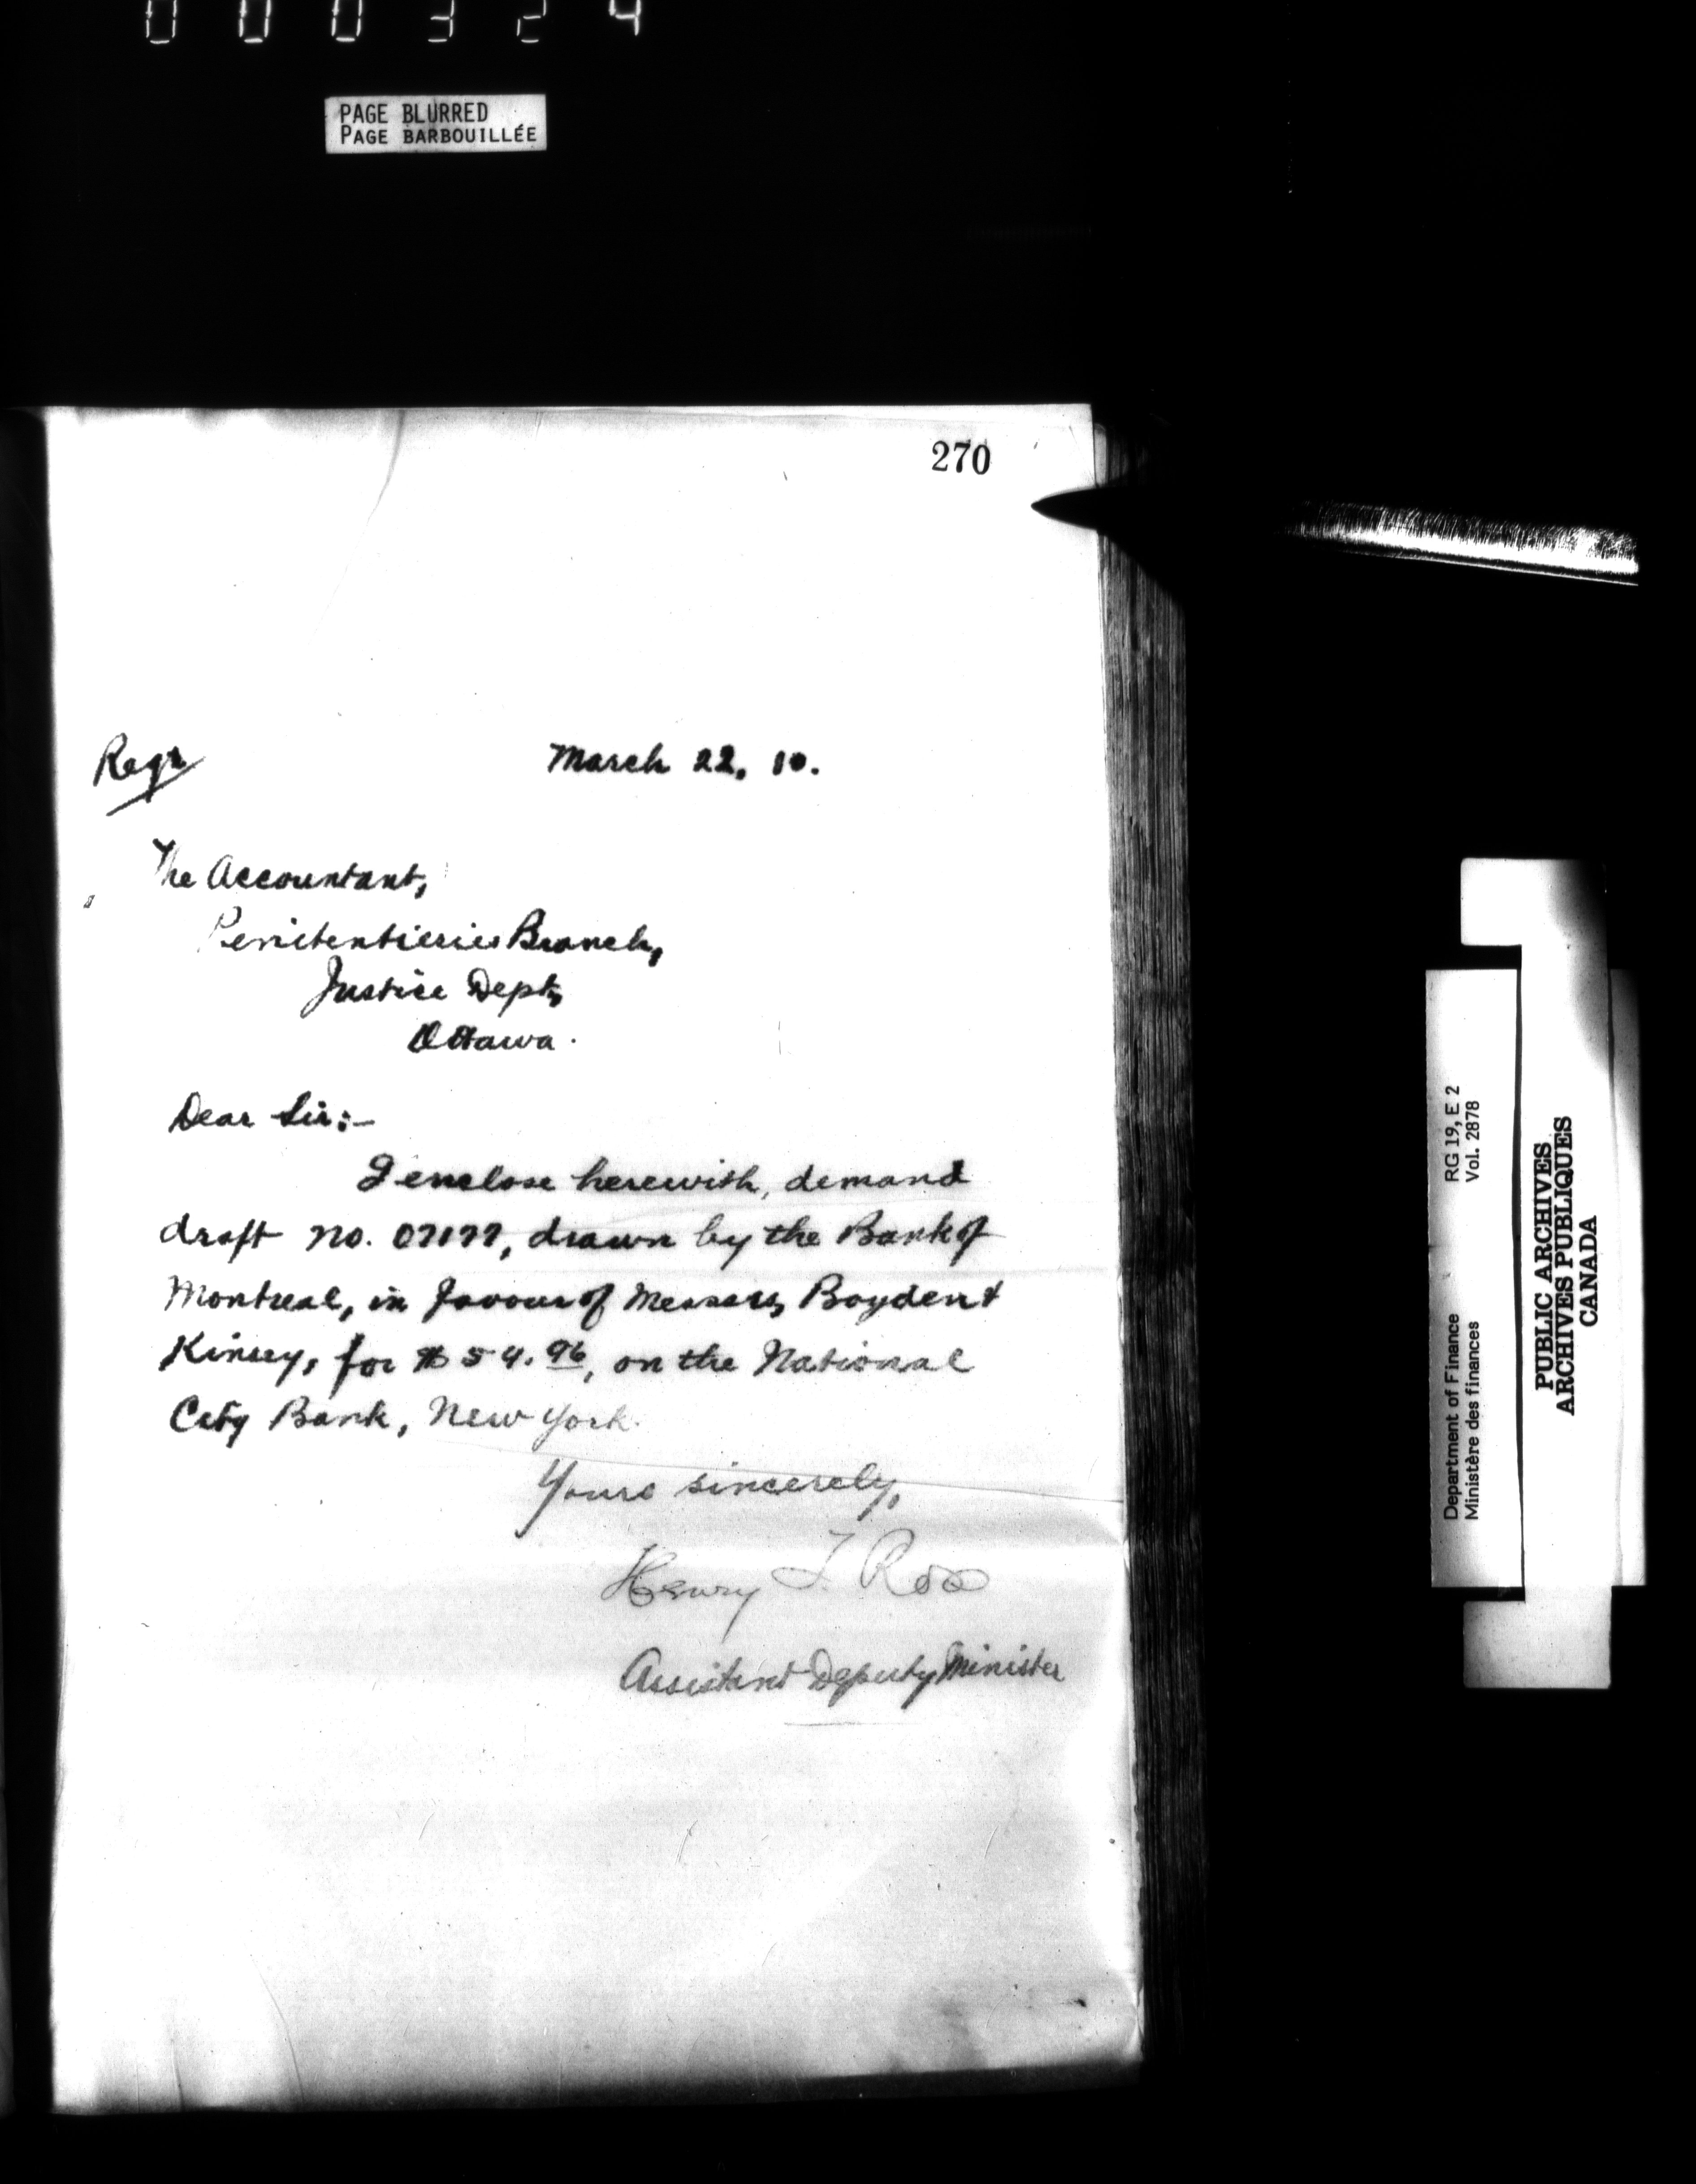 000324
PAGE BLURRED
PAGE BARBOUILLÉE
270
Regr
March 22, 10.
The Accountant,
Penitentieries Branch,
Justice Dept,
Ottawa.
Dear Sir:-
I enclose herewith, demand
draft No. 07177, drawn by the Bank of
Montreal, in favour of Messrs, Boyden &
Kinsey, for $54.96, on the National
City Bank, New York.
Yours sincerely,
Henry T. Ross
Assistant Deputy Minister
Department of Finance RG 19, E 2
Ministère des finances Vol. 2878
PUBLIC ARCHIVES
ARCHIVES PUBLIQUES
CANADA